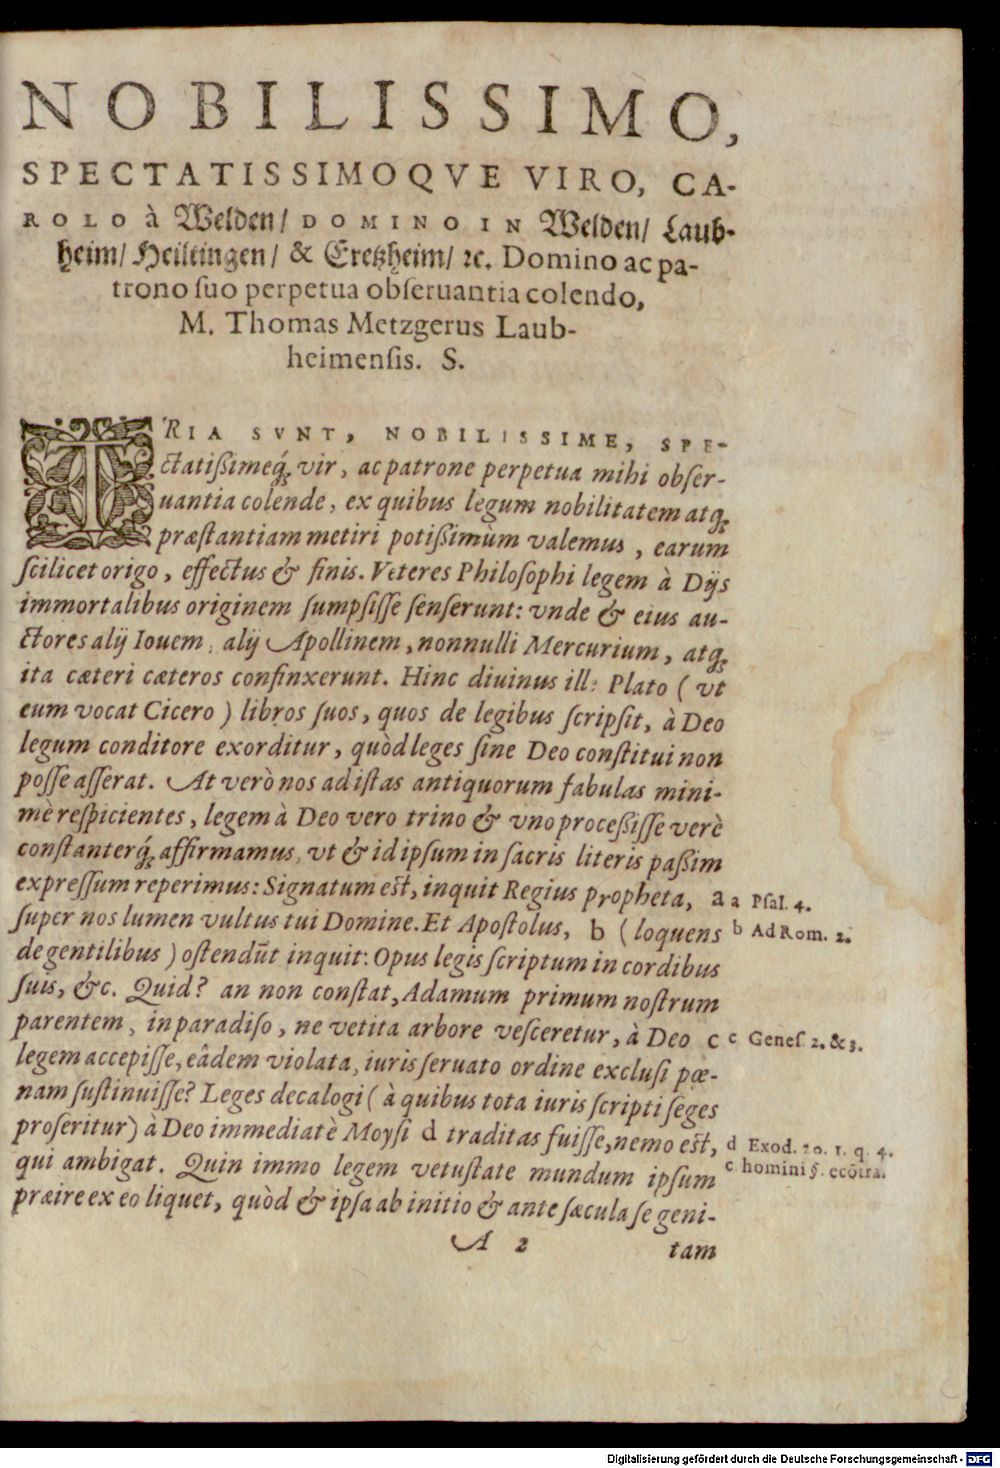 NOBILISSIMO,
SPECTATISSIMOQVE VIRO, CA-
ROLO à Welden/ DOMINO IN Welden/ Laub-
heim/ Heiltingen/ & Eretzheim/ ꝛc. Domino ac pa-
trono ſuo perpetua obſeruantia colendo,
M. Thomas Metzgerus Laub-
heimenſis. S.
TRIA SVNT, NOBILISSIME, SPE-
ctatißimeq́; vir, ac patrone perpetua mihi obſer-
uantia colende, ex quibus legum nobilitatem atq;
præſtantiam metiri potißimùm valemus, earum
ſcilicet origo, effectus & finis. Veteres Philoſophi legem à Dijs
immortalibus originem ſumpſiſſe ſenſerunt: vnde & eius au-
ctores alij Iouem, alij Apollinem, nonnulli Mercurium, atq;
ita cæteri cæteros confinxerunt. Hinc diuinus ill: Plato ( vt
eum vocat Cicero ) libros ſuos, quos de legibus ſcripſit, à Deo
legum conditore exorditur, quòd leges ſine Deo conſtitui non
poſſe aſſerat. At verò nos ad iſtas antiquorum fabulas mini-
mè reſpicientes, legem à Deo vero trino & vno proceßiſſe verè
conſtanterq́; affirmamus, vt & id ipſum in ſacris literis paßim
expreſſum reperimus: Signatum eſt, inquit Regius propheta, a
a Pſal. 4.
ſuper nos lumen vultus tui Domine. Et Apoſtolus, b ( loquens
b Ad Rom. 2.
de gentilibus ) oſtendūt inquit: Opus legis ſcriptum in cordibus
ſuis, &c. Quid? an non conſtat, Adamum primum noſtrum
parentem, in paradiſo, ne vetita arbore veſceretur, à Deo c
c Geneſ. 2. & 3.
legem accepiſſe, eâdem violata, iuris ſeruato ordine excluſi pœ-
nam ſuſtinuiſſe? Leges decalogi ( à quibus tota iuris ſcripti ſeges
proſeritur) à Deo immediatè Moyſi d traditas fuiſſe, nemo eſt,
d Exod. 20. 1. q. 4.
qui ambigat. Quin immo legem vetuſtate mundum ipſum
c homini §. eccōtra.
præire ex eo liquet, quòd & ipſa ab initio & ante ſæcula ſe geni-
A 2 tam
Digitalisierung gefördert durch die Deutsche Forschungsgemeinschaft - DFG